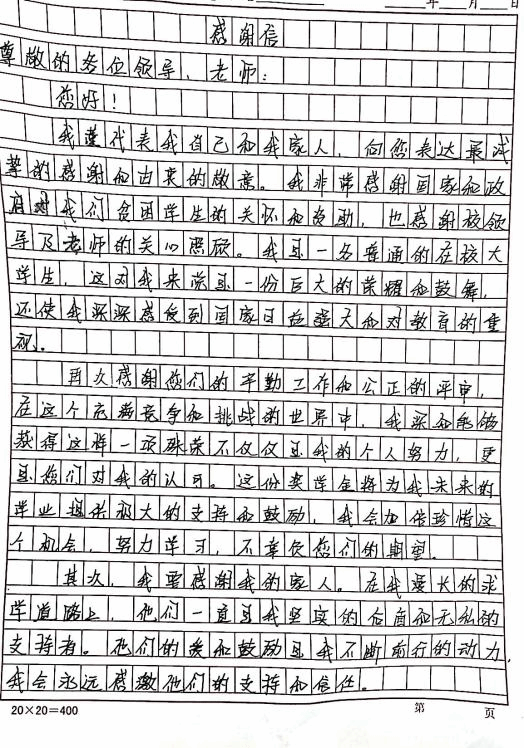 年 月 日
感谢信
尊敬的各位领导、老师:
您好!
我谨代表我自己和我家人,向您表达最诚
挚的感谢和由衷的敬意。我非常感谢国家和政
府对我们贫困学生的关怀和资助,也感谢校领
导及老师的关心照顾。我是一名普通的在校大
学生,这对我来说是一份巨大的荣耀和鼓舞,
还使我深深感受到国家日益强大和对教育的重
视。
再次感谢您们的辛勤工作和公正的评审,
在这个充满竞争和挑战的世界中,我深知能够
获得这样一项殊荣不仅仅是我的个人努力,更
是您们对我的认可。这份奖学金将为我未来的
学业提供极大的支持和鼓励,我会加倍珍惜这
个机会,努力学习,不辜负您们的期望。
其次,我要感谢我的家人。在我漫长的求
学道路上,他们一直是我坚实的后盾和无私的
支持者。他们的爱和鼓励是我不断前行的动力,
我会永远感激他们的支持和信任。
20×20=400 第 页